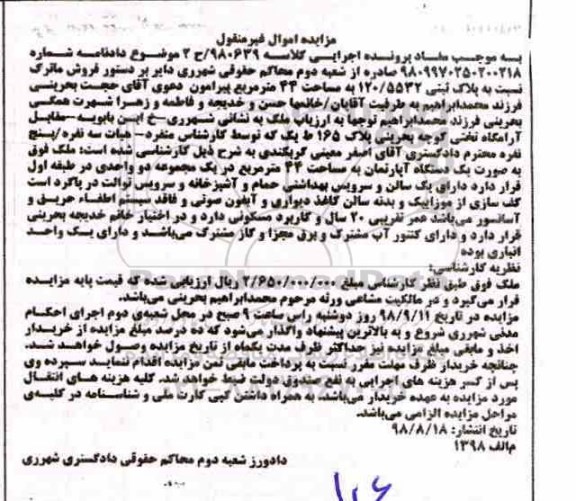 مزایده اموال غیرمنقول
به موجب مفاد پرونده اجرایی کلاسه ۹۸۰۶۳۹/ح ۲ موضوع دادنامه شماره
۹۸۰۹۹۷۰۲۵۰۲۰۰۲۱۸ صادره از شعبه دوم محاکم حقوقی شهرری دایر بر دستور فروش ماترک
نسبت به پلاک ثبتی ۱۲۰/۵۵۳۲ به مساحت ۴۴ مترمربع پیرامون دعوی آقای حجت بحرینی
فرزند محمدابراهیم به طرفیت آقایان/خانمها حسن و خدیجه و فاطمه و زهرا شهرت همگی
بحرینی فرزند محمدابراهیم توجها به ارزیاب ملک به نشانی شهرری-خ ابن بابویه-مقابل
آرامگاه تختی کوچه بحرینی پلاک ۱۶۵ ط یک که توسط کارشناس منفرد-هیات سه نفره/پنج
نفره محترم دادگستری آقای اصغر معینی کریکندی به شرح ذیل کارشناسی شده است: ملک فوق
به صورت یک دستگاه آپارتمان به مساحت ۴۴ مترمربع در یک مجموعه دو واحدی در طبقه اول
قرار دارد دارای یک سالن و سرویس بهداشتی حمام و آشپزخانه و سرویس توالت در پاگرد است
کف سازی از موزاییک و بدنه سالن کاغذ دیواری و آیفون صوتی و فاقد سیستم اطفاء حریق و
آسانسور می‌باشد عمر تقریبی ۲۰ سال و کاربرد مسکونی دارد و در اختیار خانم خدیجه بحرینی
قرار دارد و دارای کنتور آب مشترک و برق مجزا و گاز مشترک می‌باشد و دارای یک واحد
انباری بوده
نظریه کارشناسی:
ملک فوق طبق نظر کارشناس مبلغ ۲/۶۵۰/۰۰۰/۰۰۰ ریال ارزیابی شده که قیمت پایه مزایده
قرار می‌گیرد و در مالکیت مشاعی ورثه مرحوم محمدابراهیم بحرینی می‌باشد.
مزایده در تاریخ ۹۸/۹/۱۱ روز دوشنبه راس ساعت ۹ صبح در محل شعبه‌ی دوم اجرای احکام
مدنی شهرری شروع و به بالاترین پیشنهاد واگذار می‌شود که ده درصد مبلغ مزایده از خریدار
اخذ و مابقی مبلغ مزایده نیز حداکثر ظرف مدت یکماه از تاریخ مزایده وصول خواهد شد.
چنانچه خریدار ظرف مهلت مقرر نسبت به پرداخت مابقی ثمن مزایده اقدام ننماید سپرده وی
پس از کسر هزینه های اجرایی به نفع صندوق دولت ضبط خواهد شد. کلیه هزینه های انتقال
مورد مزایده به عهده خریدار می‌باشد. به همراه داشتن کپی کارت ملی و شناسنامه در کلیه‌ی
مراحل مزایده الزامی می‌باشد.
تاریخ انتشار: ۹۸/۸/۱۸
م‌الف ۱۳۹۸
دادورز شعبه دوم محاکم حقوقی دادگستری شهرری